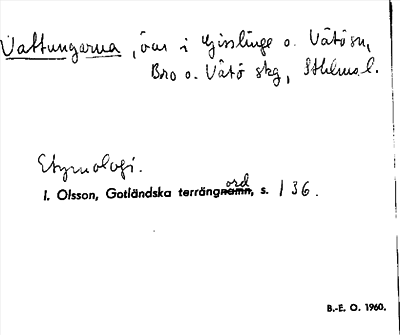 Vattungarna, öar i Gisslinge o. Vätösn,
Bro o. Vätö skg, Sthlms l.
Etymologi.
I. Olsson, Gotländska terrängnamn, ord s. 136.
B.-E. O. 1960.